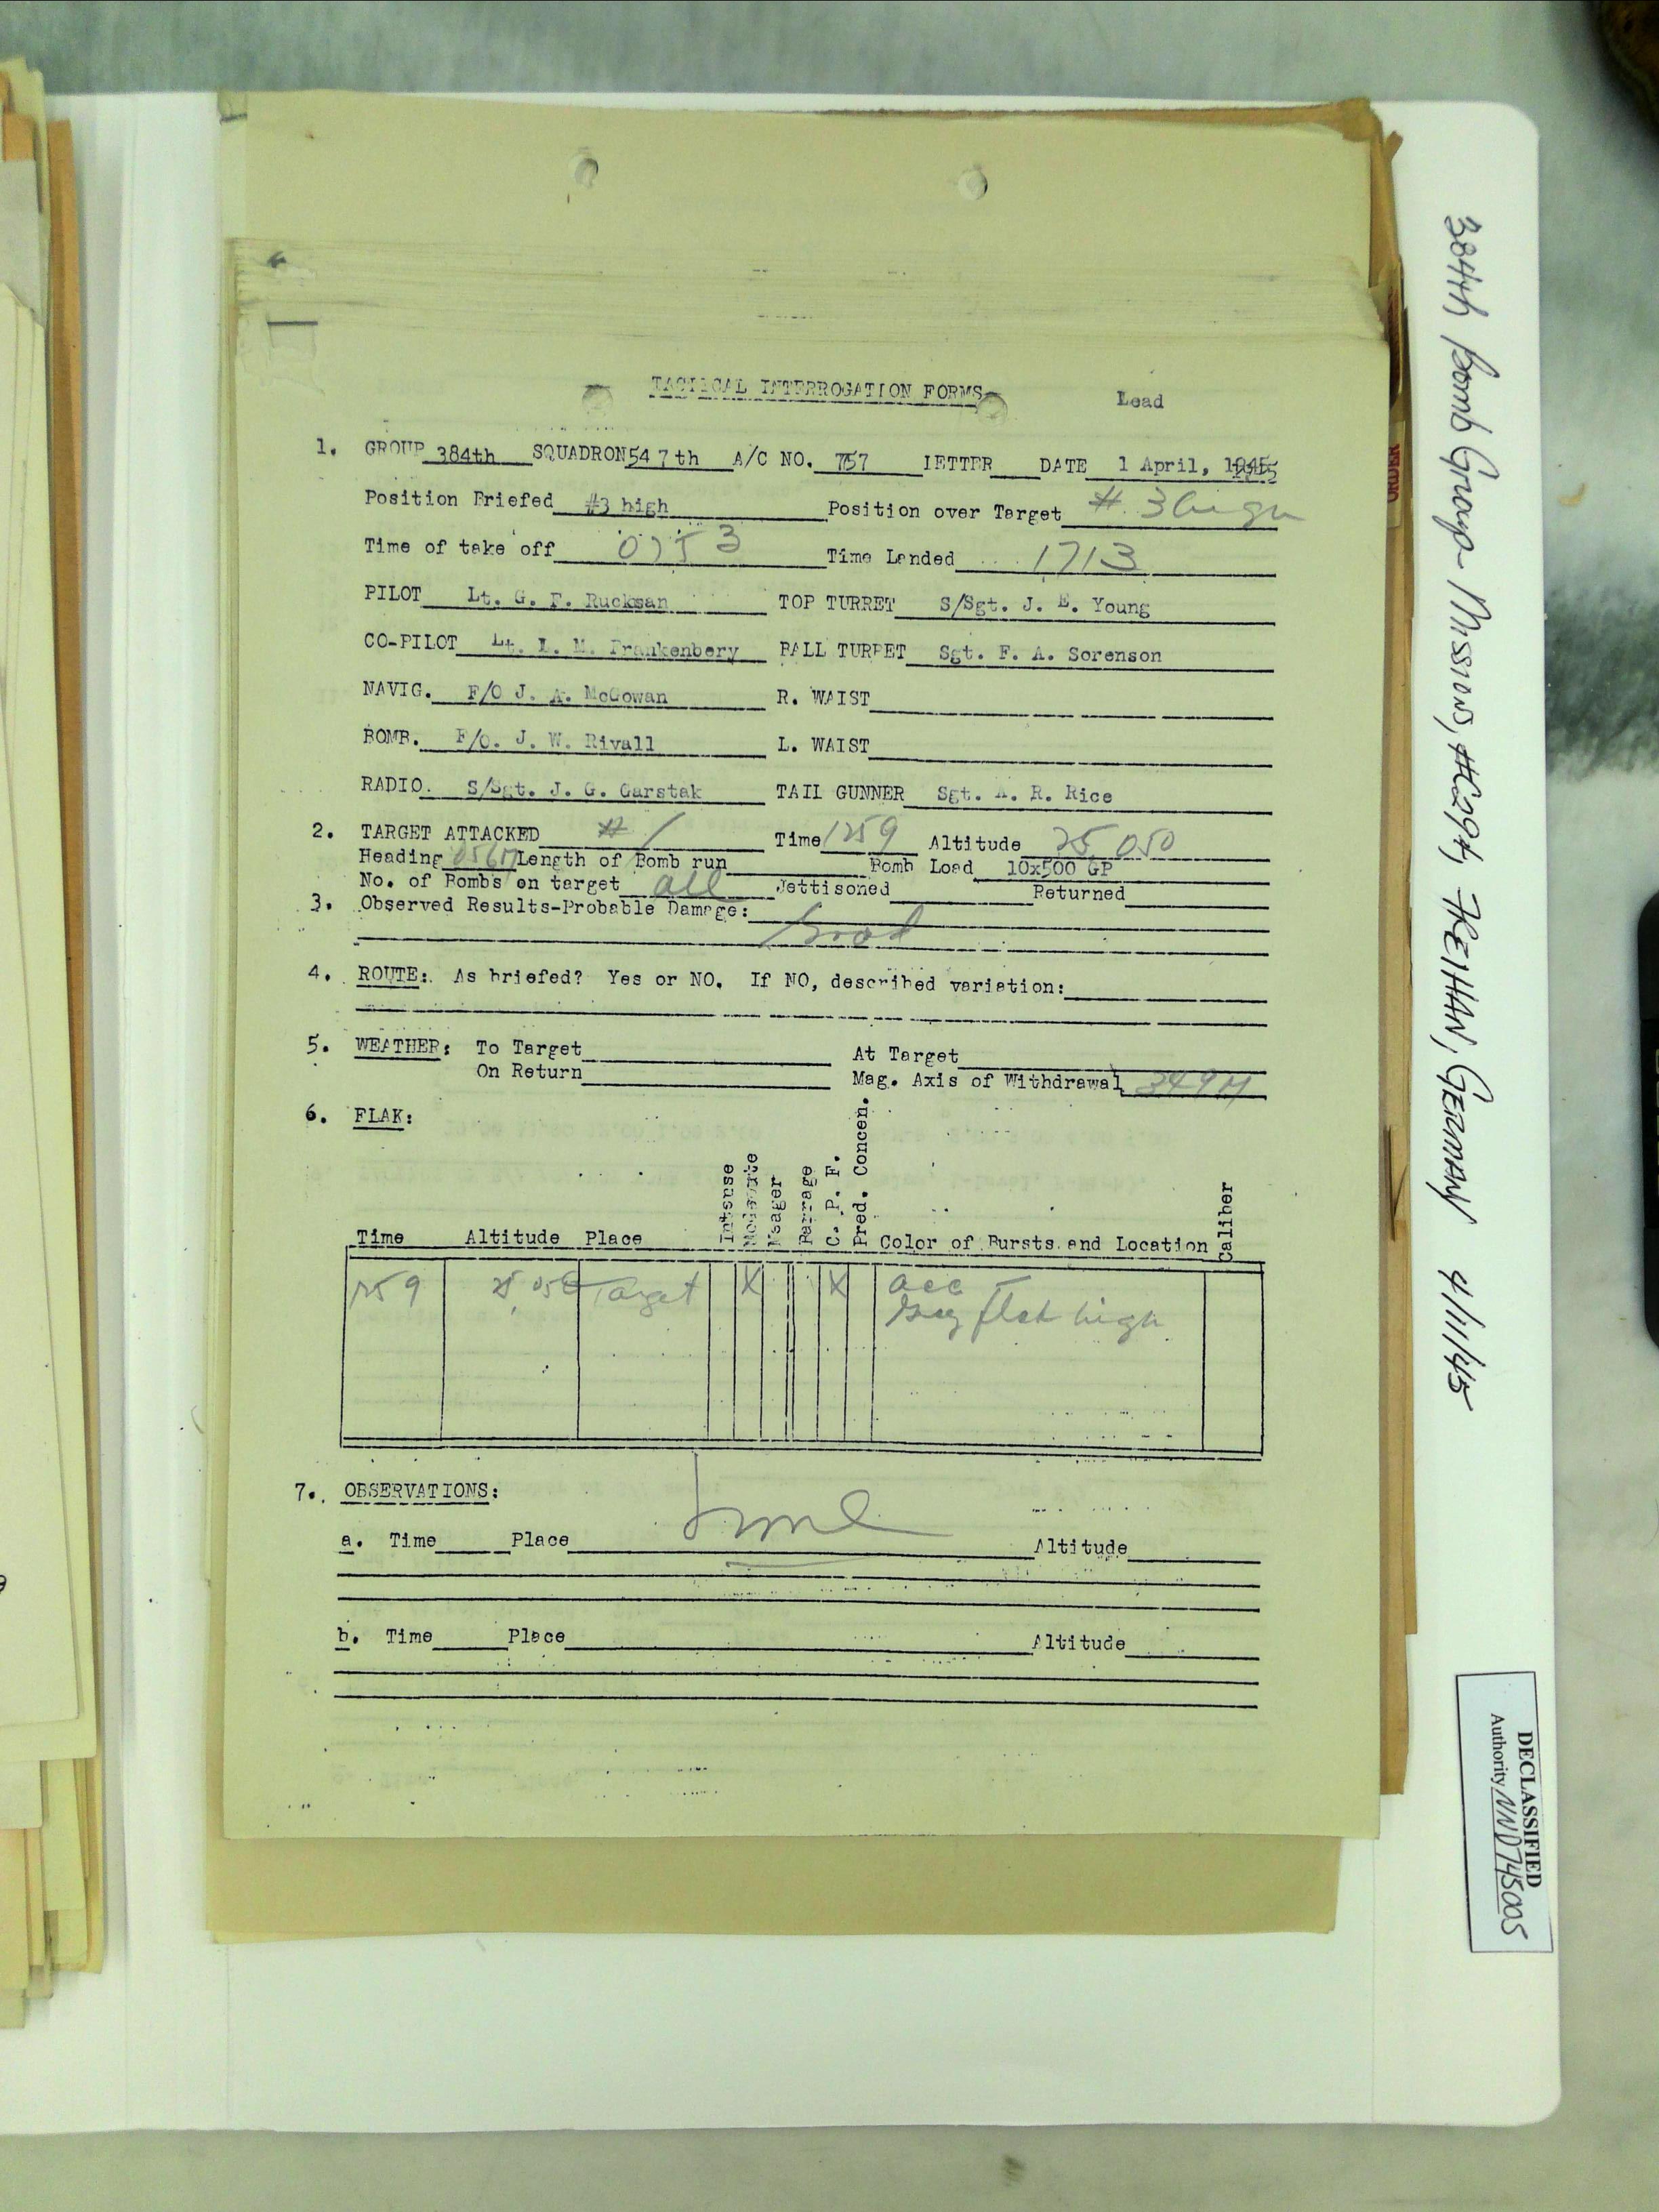 TACTICAL INTERROGATION FORMS
Lead
1. GROUP 384th SQUADRON 547th A/C NO. 757 LETTER DATE 1 April, 1945
Position Briefed #3 high Position over Target # 3 high
Time of take off 0753 Time Landed 1713
PILOT Lt. G. F. Rucksan TOP TURRET S/Sgt. J. E. Young
CO-PILOT Lt. L. M. Frankenbery BALL TURRET Sgt. F. A. Sorenson
NAVIG. F/O J. A. McGowan R. WAIST
BOMB. F/O. J. W. Rivall L. WAIST
RADIO. S/Sgt. J. G. Garstak TAIL GUNNER Sgt. A. R. Rice
2. TARGET ATTACKED # 1 Time 1259 Altitude 25,050
Heading 056M Length of Bomb run Bomb Load 10x500 GP
No. of Bombs on target all Jettisoned Returned
3. Observed Results-Probable Damage:
Good
4. ROUTE: As briefed? Yes or NO. If NO, described variation:
5. WEATHER: To Target At Target
On Return Mag. Axis of Withdrawal 349M
6. FLAK:
Time Altitude Place Intense Moderate Meager Barrage C. P. F. Pred. Concen. Color of Bursts and Location Caliber
1259 25,050 Target X X acc
flak high
7. OBSERVATIONS:
a. Time Place Altitude
b. Time Place Altitude
384th Bomb Group - Missions, #294, GERMANY 4/11/45
DECLASSIFIED
Authority NND745005
ORDER